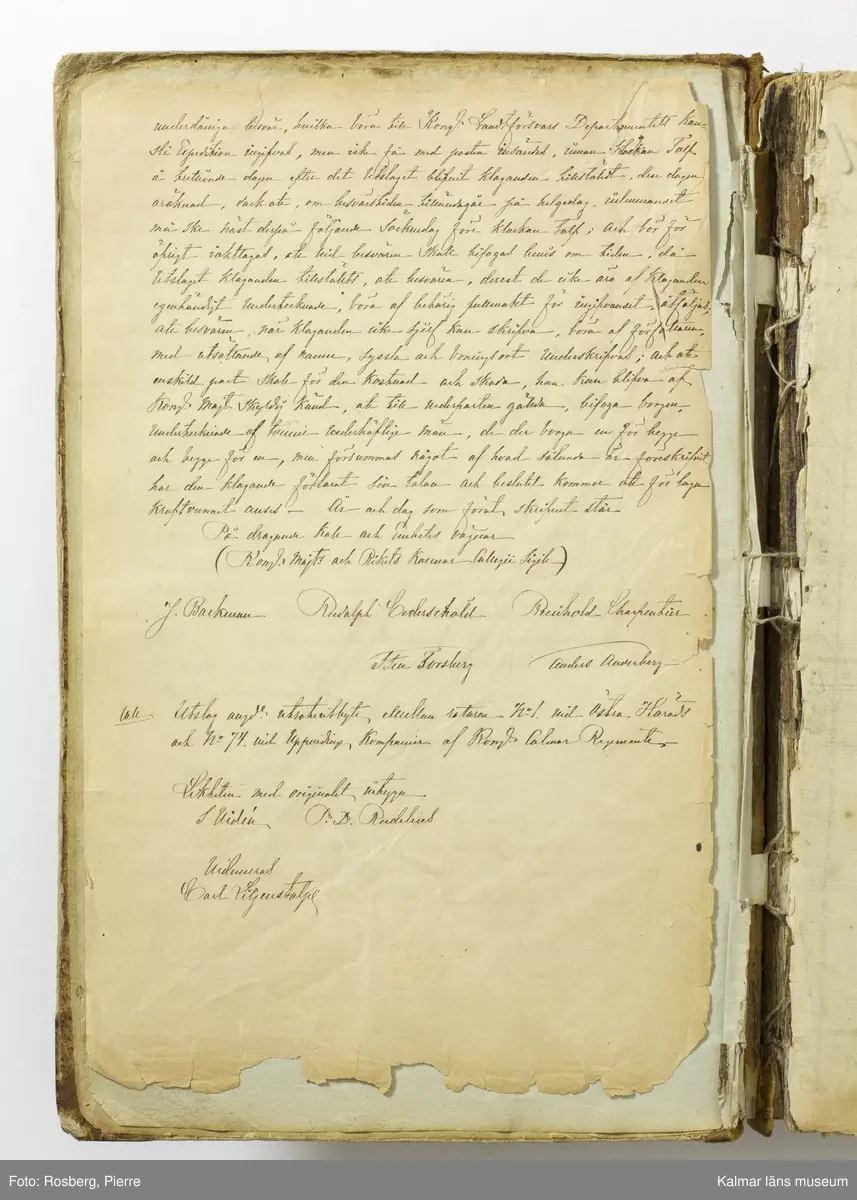 underdåniga besvär, hvilka böra till Kongl. Landtförsvars Departementets Kan-
sli Expedition ingifvas, men icke få med posten insändas, innan Klockan Tolf
å trettionde dagen efter det Utslaget blifvit klaganden tillstäldt, den dagen
oräknad, dock att, om besvärstiden tilländagår på helgedag, inlemnandet
må ske näst derpå följande Söckendag före klockan Tolf; och bör för
öfrigt iakttagas, att vid besvären skall bifogas bevis om tiden, då
Utslaget klaganden tillstälts, att besvären, derest de icke äro af Klaganden
egenhändigt undertecknade, böra af behörig fullmakt för ingifvandet, åtföljas;
att besvären, när klaganden icke sjelf kan skrifva, böra af författaren,
med utsättande af namn, syssla och boningsort underskrifvas; och att
enskild part skall för den kostnad och skada, han kan blifva af
Kongl. Majt. skyldig känd, att till vederparten gälda, bifoga borgen,
undertecknade af tvenne vederhäftige män, de der borga en för begge
och begge för en, men försummas något af hvad sålunda är föreskrifvit
har den klagande förlorat sin talan och beslutet kommer att för laga
kraftvunnet anses — År och dag som förut skrifvit står
På dragande kall och Embetes vägnar
(Kongl. Majts och Rikets Kammar Collegii Sigill)
J. Backman Rudolph Cederschöld Reinhold Charpentier
Sten Forsberg Anders Anderberg
Utslag angde. utrotebyte mellan rotarne No 1. vid Östra Härads
och No 74. vid Uppvidinge Kompanier af Kongl. Calmar Regemente
Likheten med originalet, intyga
S Widén P. D. Rudelius
Vidimeras
Carl Liljenstolpe
Foto: Rosberg, Pierre
Kalmar läns museum